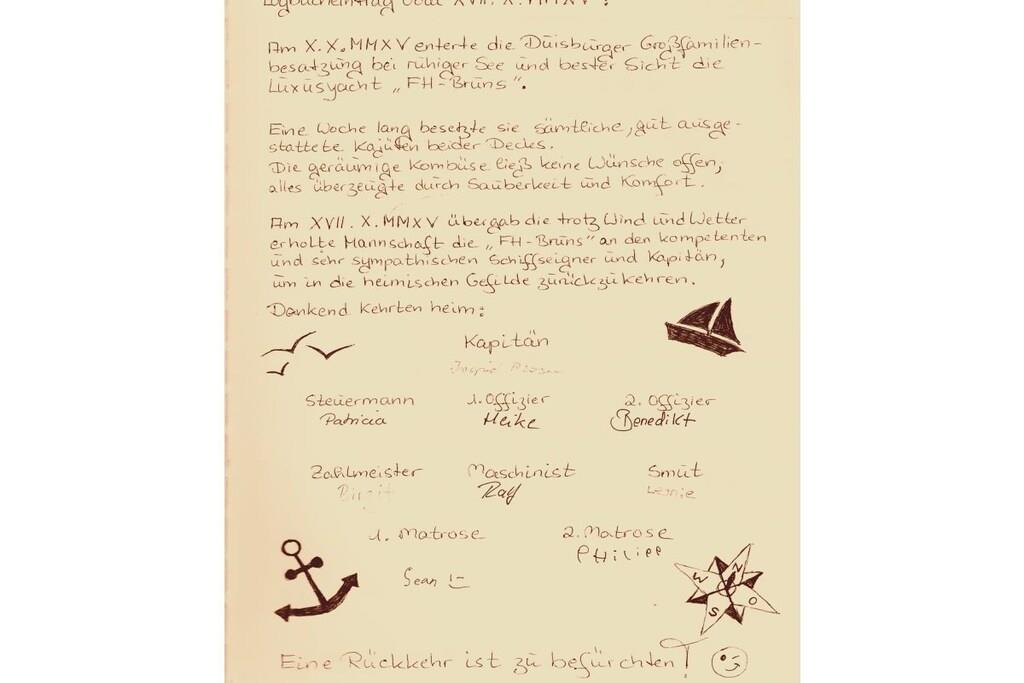 Logbucheintrag vom XVII. X. MMXV :
Am X. X. MMXV enterte die Duisburger Großfamilien-
besatzung bei ruhiger See und bester Sicht die
Luxusyacht „FH-Bruns".
Eine Woche lang besetzte sie sämtliche, gut ausge-
stattete Kajüten beider Decks.
Die geräumige Kombüse ließ keine Wünsche offen,
alles überzeugte durch Sauberkeit und Komfort.
Am XVII. X. MMXV übergab die trotz Wind und Wetter
erholte Mannschaft die „FH-Bruns" an den kompetenten
und sehr sympathischen Schiffseigner und Kapitän,
um in die heimischen Gefilde zurückzukehren.
Dankend kehrten heim:
Kapitän
Steuermann 1. Offizier 2. Offizier
Patricia Heike Benedikt
Zahlmeister Maschinist Smut
Birgit Ralf Leonie
1. Matrose 2. Matrose
Philipp
Sean !-)
W N
S O
Eine Rückkehr ist zu befürchten!